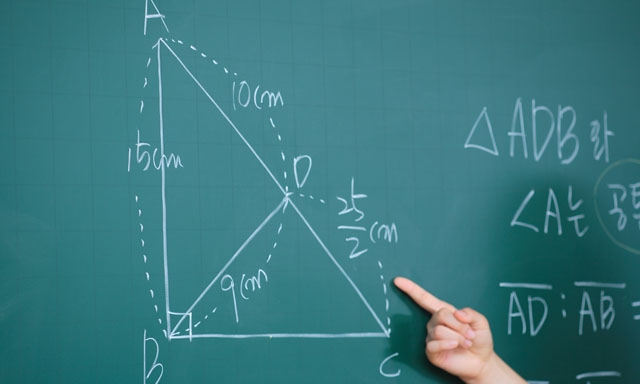 A
10cm
15cm
D
25/2 cm
9cm
B
C
△ADB와
∠A는 공통
AD : AB =